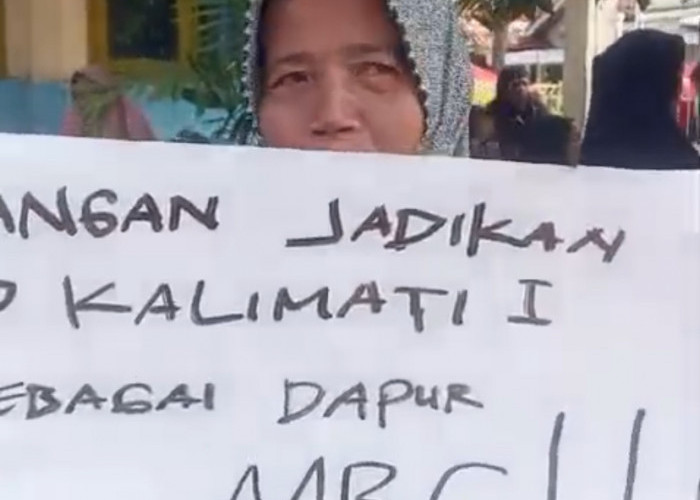 ANGAN JADIKAN
KALIMATI I
EBAGAI DAPUR
MBG!!